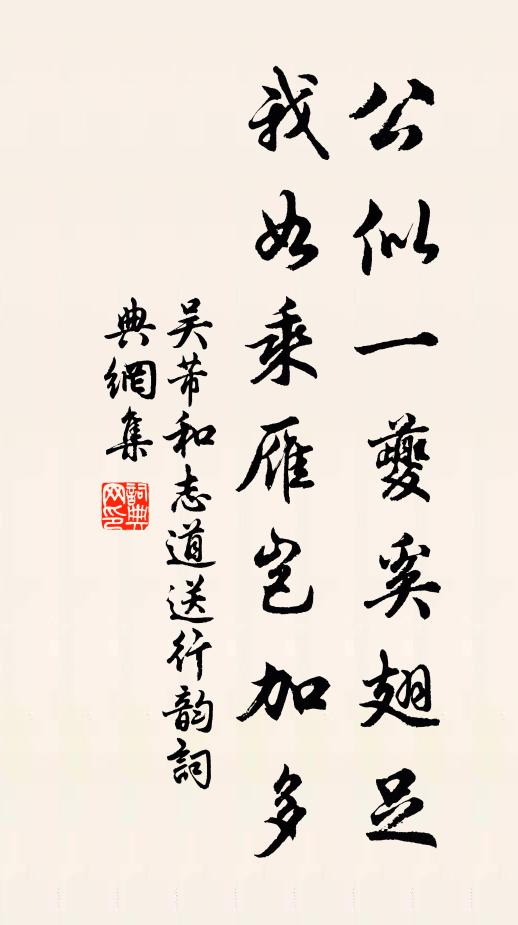 公似一夔奚翅足
我如乘雁岂加多
吴芾和志道送行韵詞
典網集
詞典
网印